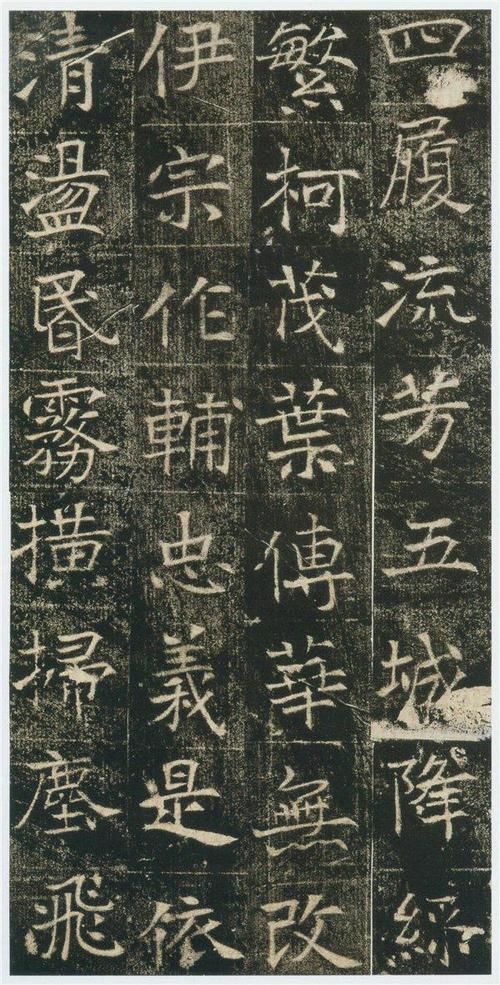 四履流芳五城降綵
繁柯茂葉傳華無改
伊宗作輔忠義是依
清盪昬霧撗掃塵飛